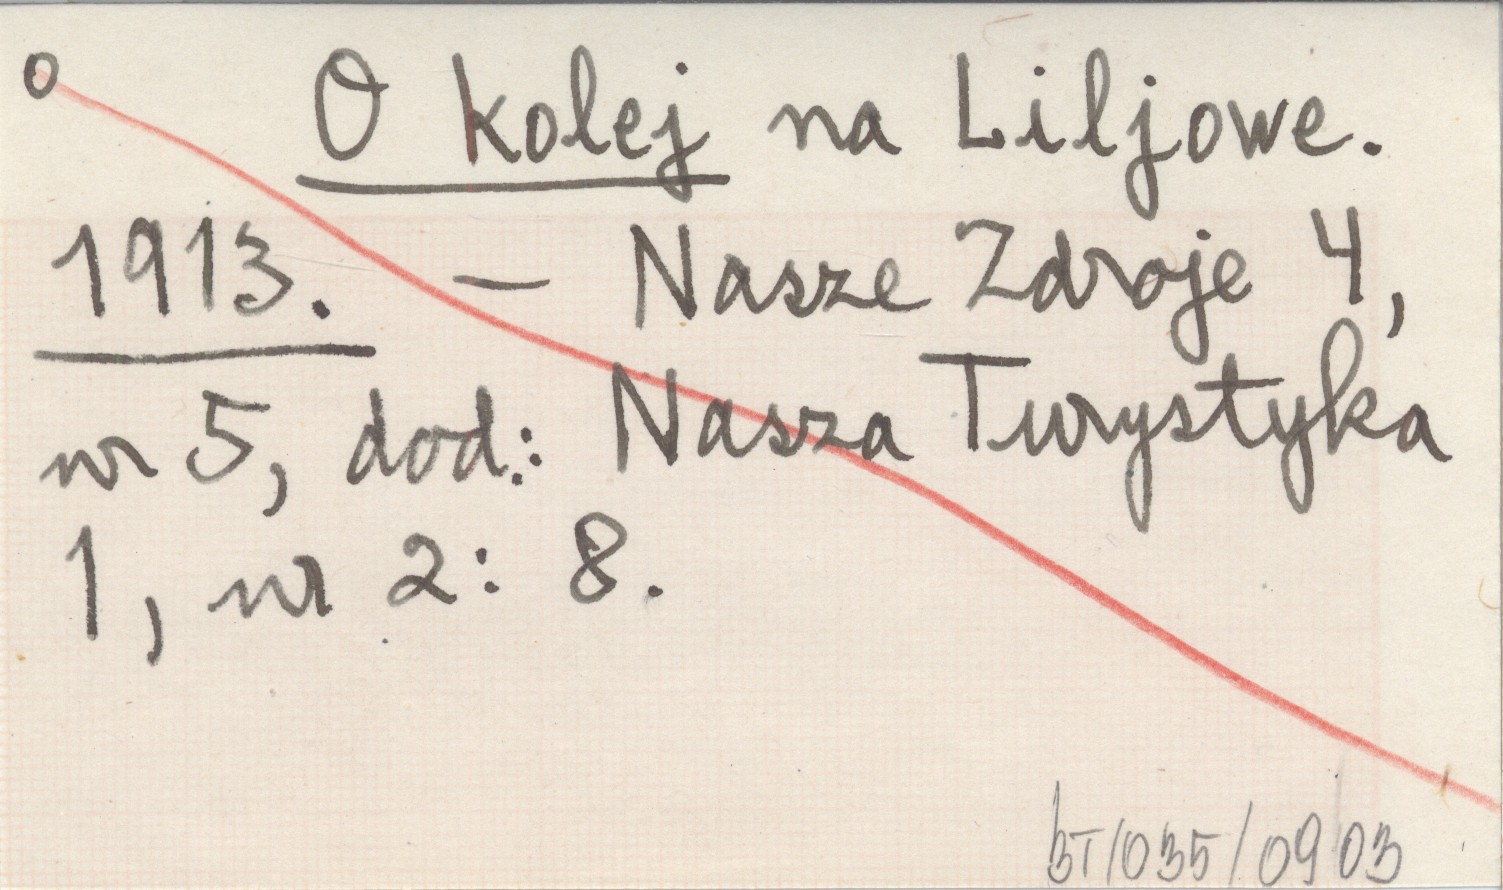 o O kolej na Liljowe.
1913. – Nasze Zdroje 4,
nr 5, dod.: Nasza Turystyka
1, nr 2: 8.
BT/035/0903